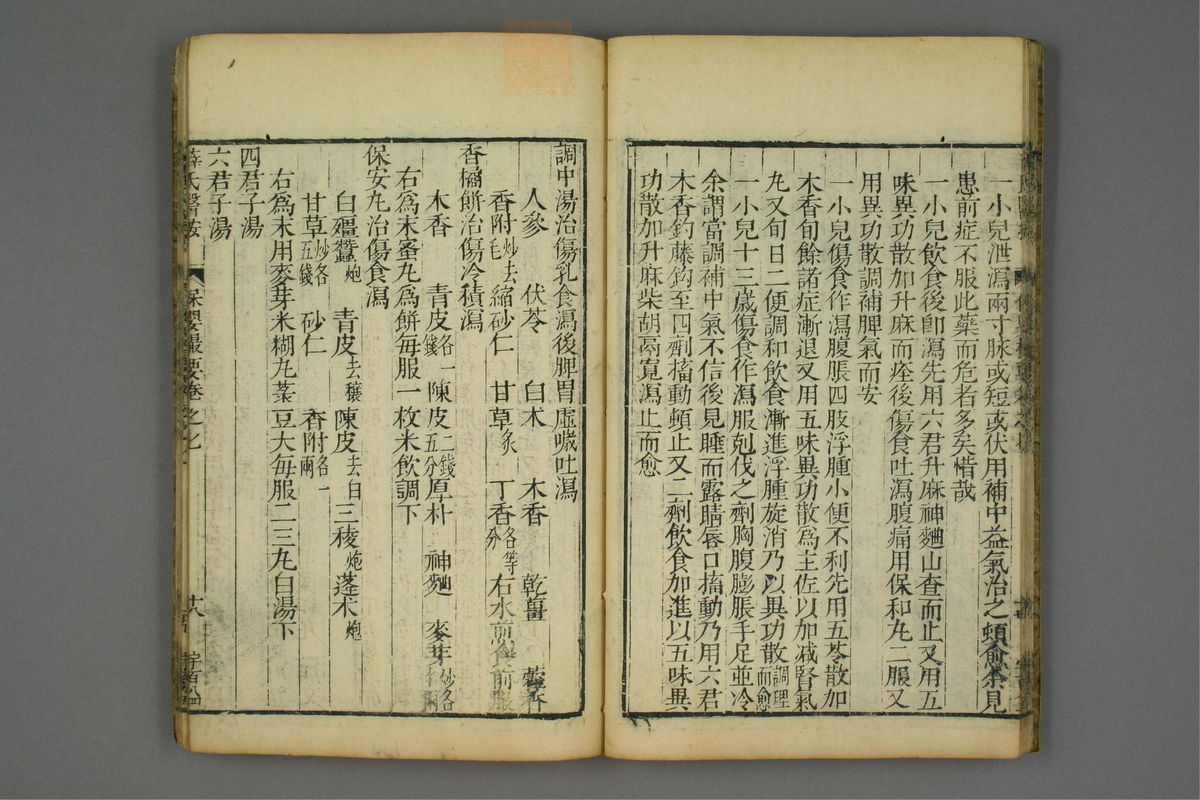 一小兒泄瀉兩寸脉或短或伏用補中益氣治之頓愈余見
患前症不服此藥而危者多矣惜哉
一小兒飲食後卽瀉先用六君升麻神麯山查而止又用五
味異功散加升麻而痊後傷食吐瀉腹痛用保和丸二服又
用異功散調補脾氣而安
一小兒傷食作瀉腹脹四肢浮腫小便不利先用五苓散加
木香旬餘諸症漸退又用五味異功散爲主佐以加减腎氣
丸又旬日二便調和飲食漸進浮腫旋消乃以異功散調理而愈
一小兒十三歲傷食作瀉服剋伐之劑胸腹膨脹手足並冷
余謂當調補中氣不信後見睡而露睛唇口搐動乃用六君
木香釣藤鈎至四劑搐動頓止又二劑飲食加進以五味異
功散加升麻柴胡鬲寛瀉止而愈
調中湯治傷乳食瀉後脾胃虛噦吐瀉
人參 伏苓 白木 木香 乾薑 藿香
香附炒去毛 縮砂仁 甘草炙 丁香各等分 右水煎食前服
香橘餅治傷冷積瀉
木香 青皮各一錢 陳皮二錢五分 厚朴 神麯 麥芽炒各
右爲末蜜丸爲餅每服一枚米飲調下
保安丸治傷食瀉
白殭蠶炮 青皮去穰 陳皮去白 三稜炮 蓬朮炮
甘草炒各五錢 砂仁 香附各一兩
右爲末用麥芽米糊丸菉豆大每服二三丸白湯下
四君子湯
六君子湯
薛氏醫按 保嬰撮要卷之七 十八